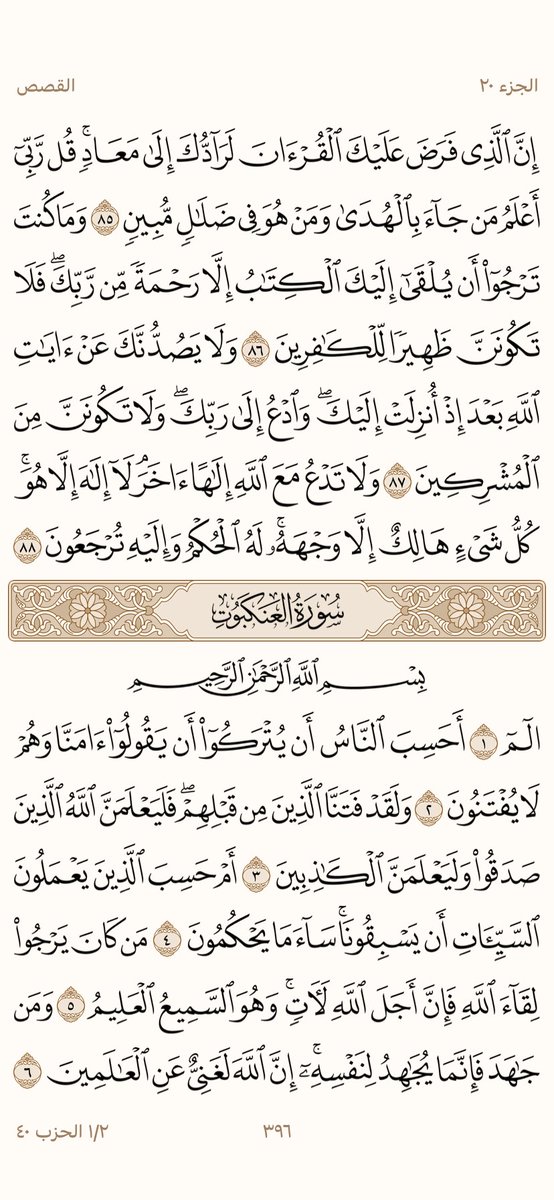 الجزء ٢٠
القصص
إِنَّ ٱلَّذِى فَرَضَ عَلَيْكَ ٱلْقُرْءَانَ لَرَآدُّكَ إِلَىٰ مَعَادٍۢ ۚ قُل رَّبِّىٓ
أَعْلَمُ مَن جَآءَ بِٱلْهُدَىٰ وَمَنْ هُوَ فِى ضَلَـٰلٍۢ مُّبِينٍۢ ٨٥ وَمَا كُنتَ
تَرْجُوٓا۟ أَن يُلْقَىٰٓ إِلَيْكَ ٱلْكِتَـٰبُ إِلَّا رَحْمَةًۭ مِّن رَّبِّكَ ۖ فَلَا
تَكُونَنَّ ظَهِيرًۭا لِّلْكَـٰفِرِينَ ٨٦ وَلَا يَصُدُّنَّكَ عَنْ ءَايَـٰتِ
ٱللَّهِ بَعْدَ إِذْ أُنزِلَتْ إِلَيْكَ ۖ وَٱدْعُ إِلَىٰ رَبِّكَ ۖ وَلَا تَكُونَنَّ مِنَ
ٱلْمُشْرِكِينَ ٨٧ وَلَا تَدْعُ مَعَ ٱللَّهِ إِلَـٰهًا ءَاخَرَ ۘ لَآ إِلَـٰهَ إِلَّا هُوَ ۚ
كُلُّ شَىْءٍ هَالِكٌ إِلَّا وَجْهَهُۥ ۚ لَهُ ٱلْحُكْمُ وَإِلَيْهِ تُرْجَعُونَ ٨٨
سُورَةُ العَنكَبُوتِ
بِسْمِ ٱللَّهِ ٱلرَّحْمَـٰنِ ٱلرَّحِيمِ
الٓمٓ ١ أَحَسِبَ ٱلنَّاسُ أَن يُتْرَكُوٓا۟ أَن يَقُولُوٓا۟ ءَامَنَّا وَهُمْ
لَا يُفْتَنُونَ ٢ وَلَقَدْ فَتَنَّا ٱلَّذِينَ مِن قَبْلِهِمْ ۖ فَلَيَعْلَمَنَّ ٱللَّهُ ٱلَّذِينَ
صَدَقُوا۟ وَلَيَعْلَمَنَّ ٱلْكَـٰذِبِينَ ٣ أَمْ حَسِبَ ٱلَّذِينَ يَعْمَلُونَ
ٱلسَّيِّـَٔاتِ أَن يَسْبِقُونَا ۚ سَآءَ مَا يَحْكُمُونَ ٤ مَن كَانَ يَرْجُوا۟
لِقَآءَ ٱللَّهِ فَإِنَّ أَجَلَ ٱللَّهِ لَـَٔاتٍۢ ۚ وَهُوَ ٱلسَّمِيعُ ٱلْعَلِيمُ ٥ وَمَن
جَـٰهَدَ فَإِنَّمَا يُجَـٰهِدُ لِنَفْسِهِۦٓ ۚ إِنَّ ٱللَّهَ لَغَنِىٌّ عَنِ ٱلْعَـٰلَمِينَ ٦
٣٩٦
١/٢ الحزب ٤٠